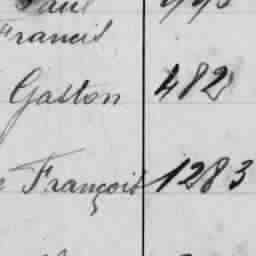 Paul
Francis
Gaston 482
François 1283